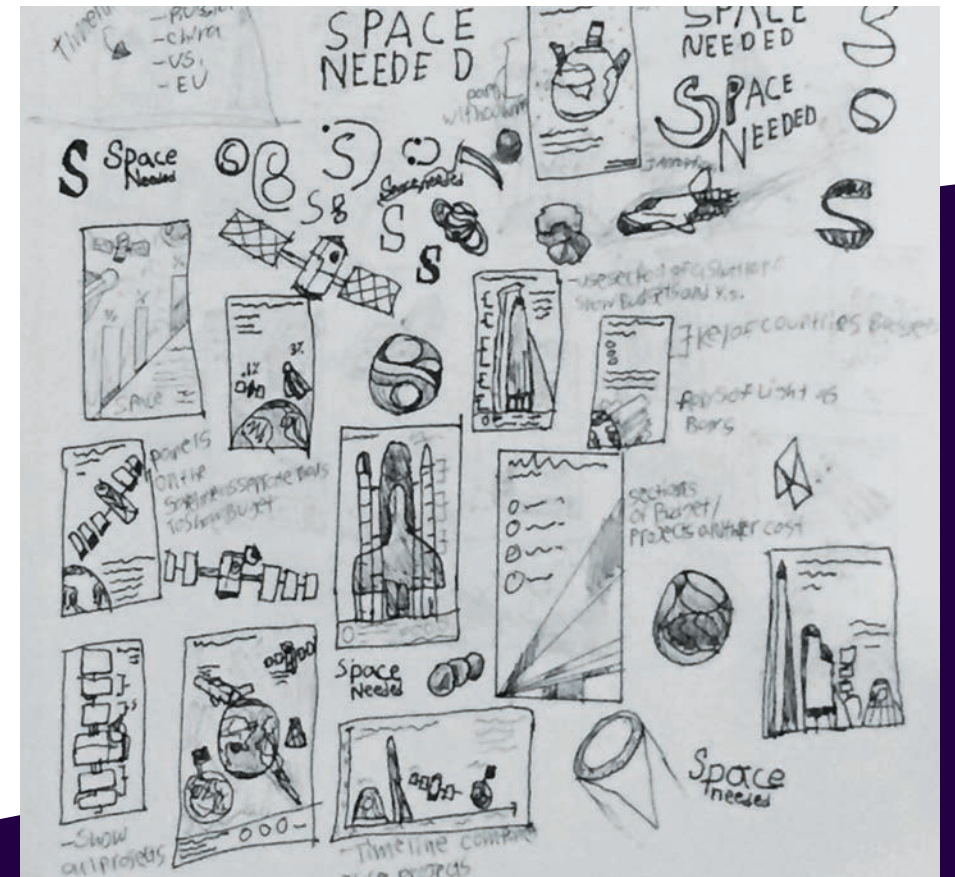 Timeline
- Russia
- China
- US.
- EU
SPACE
NEEDED
SPACE
NEEDED
SPACE
NEEDED
S
S
S Space
Needed
S
8
S
Space Needed
S 8
S
S
S
%
%
%
SPACE
.1%
3%
Show Budgets and %s.
key of countries Budget
Rays of Light as
Bars
panels
on the
to show Budget
sections
of Budget/
projects and their cost
Space
Needed
Space
needed
- Show
all projects
- Timeline compare
projects